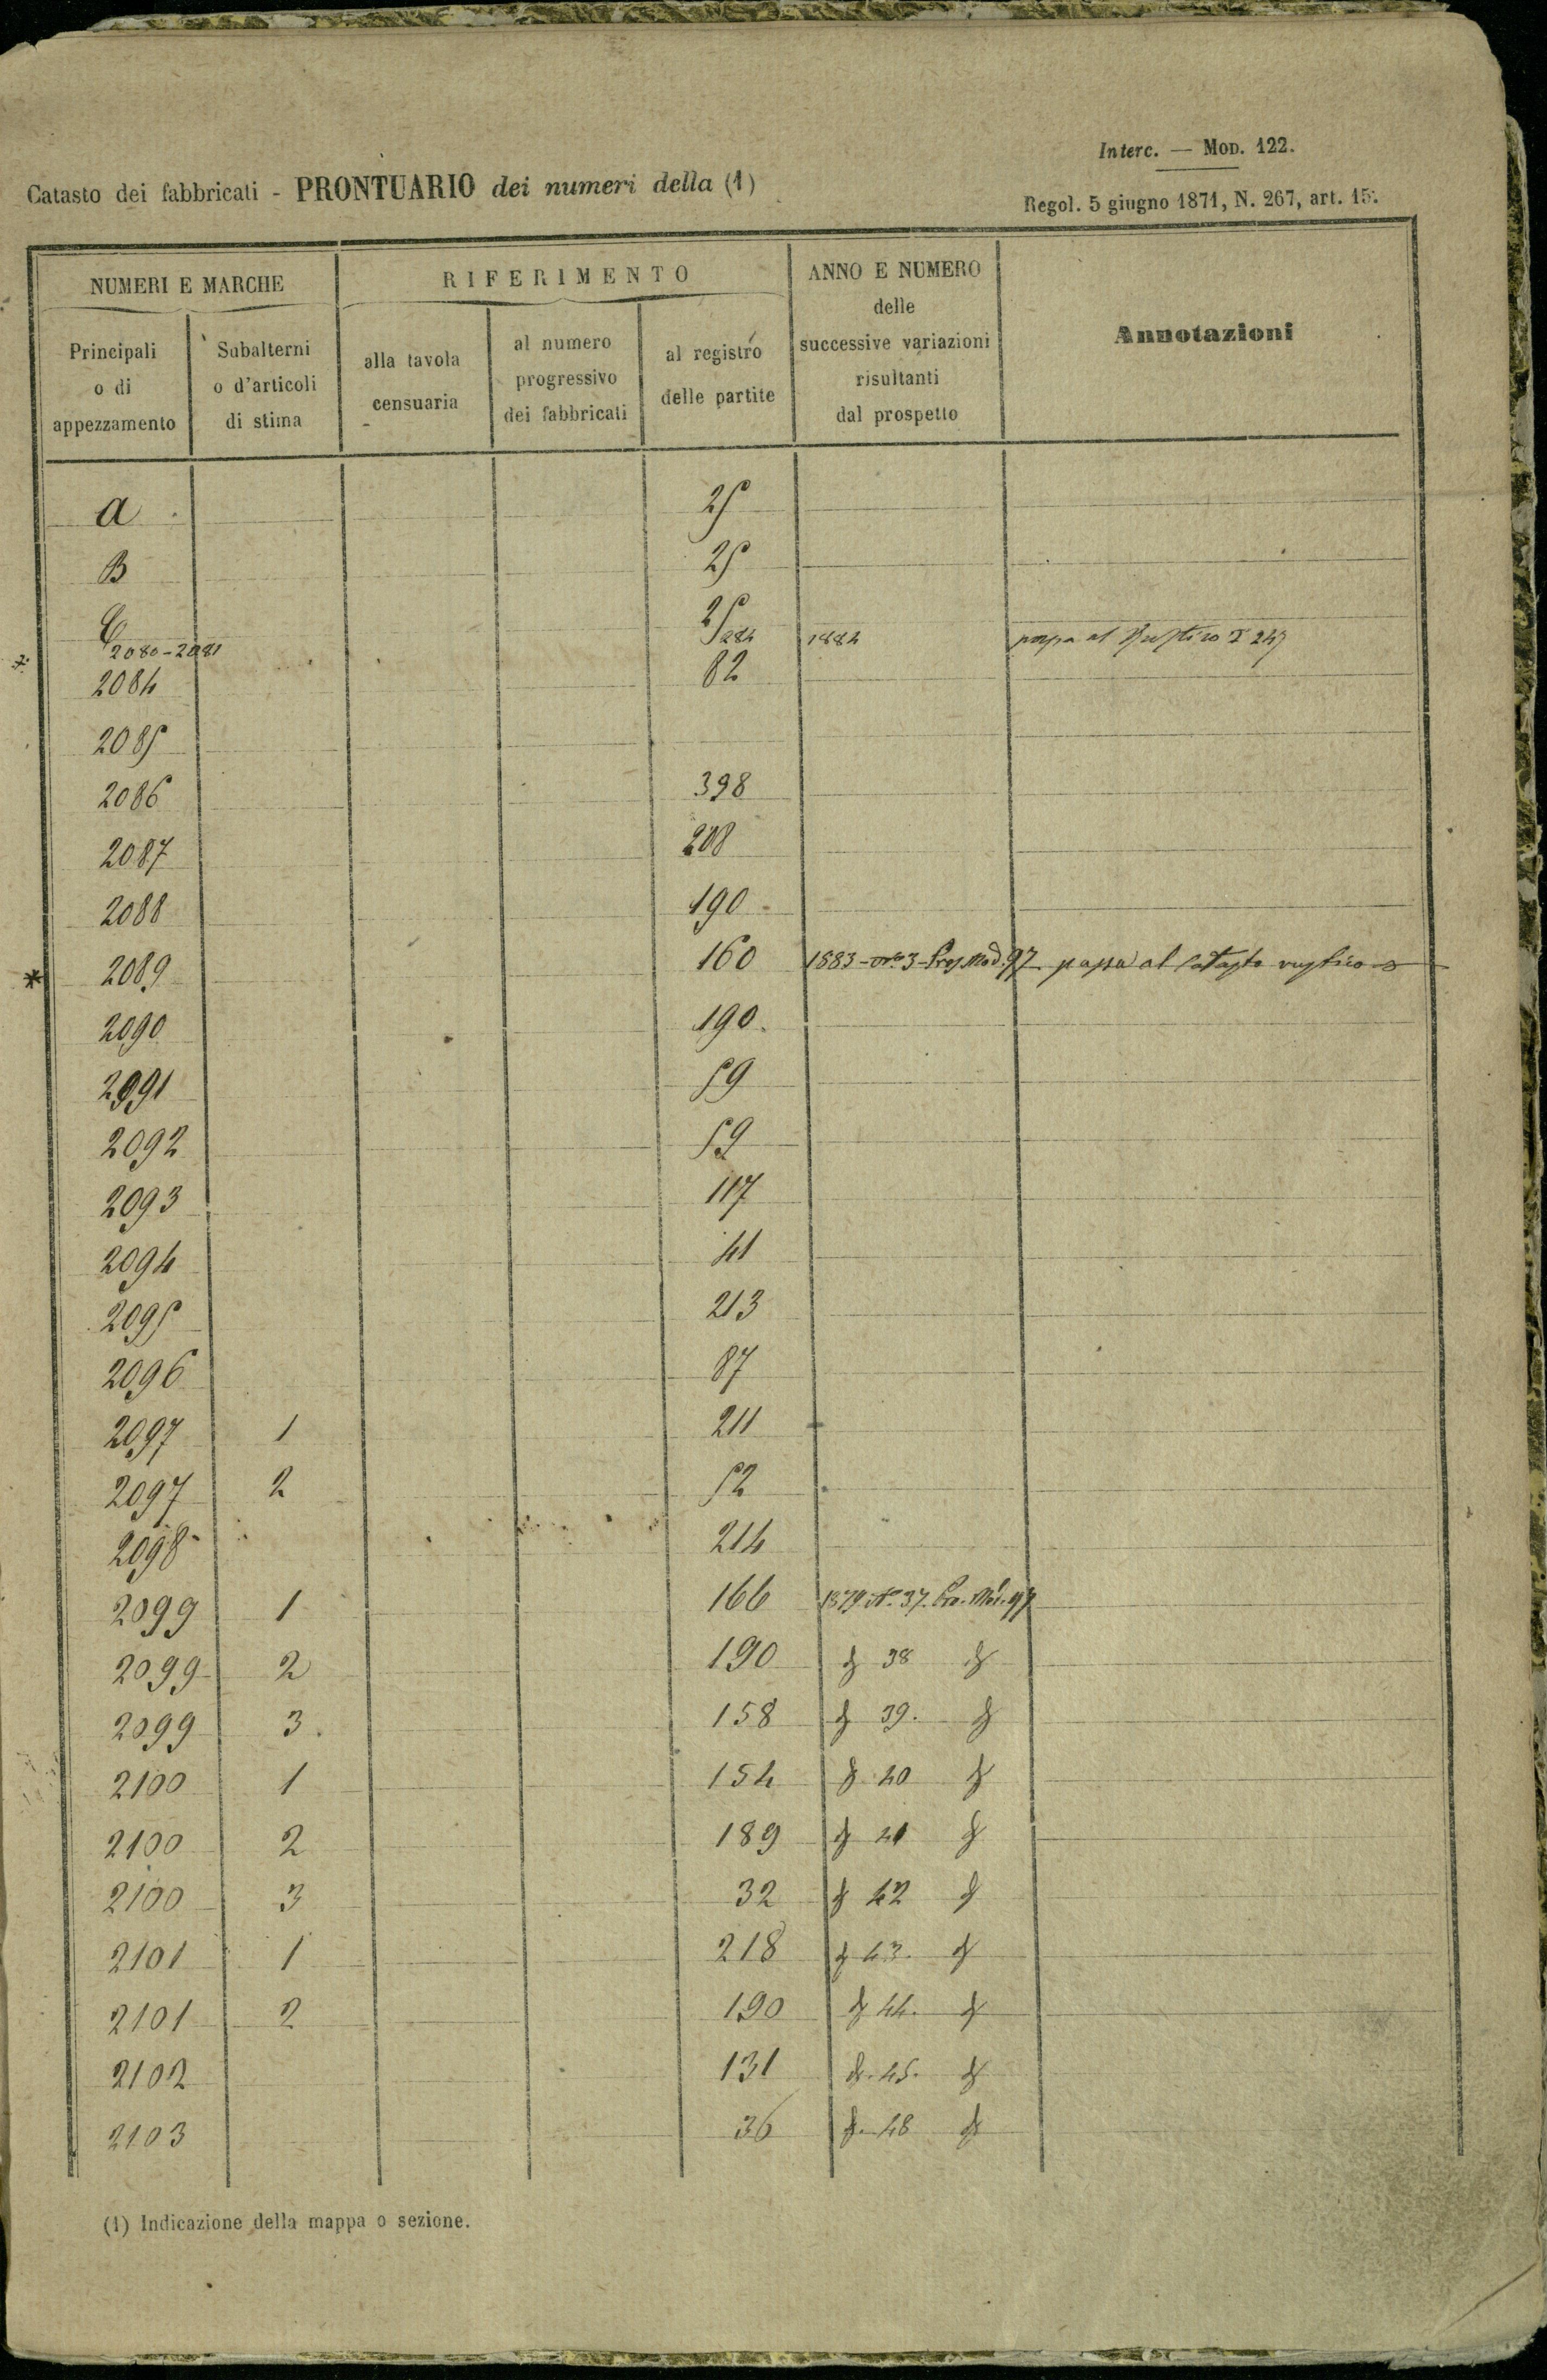 Interc. — Mod. 122.
Catasto dei fabbricati - PRONTUARIO dei numeri della (1)
Regol. 5 giugno 1871, N. 267, art. 15.
NUMERI E MARCHE
RIFERIMENTO
ANNO E NUMERO
delle
successive variazioni
risultanti
dal prospetto
Annotazioni
Principali
o di
appezzamento
Subalterni
o d'articoli
di stima
alla tavola
censuaria
al numero
progressivo
dei fabbricati
al registro
delle partite
a 25
B 25
C 25
2080-2081 284 1884 passa al Rustico
2084 82
2085
2086 398
2087 208
2088 190
* 2089 160 1883 - No. 3 - Pros. Mod. 97 passa al Catasto rustico
2090 190
2091 59
2092 59
2093 117
2094 41
2095 213
2096 87
2097 1 211
2097 2 52
2098 214
2099 1 166 1879 No. 37. Pro. Mod. 97
2099 2 190 38
2099 3 158 39
2100 1 154 40
2100 2 189 41
2100 3 32 42
2101 1 218 43
2101 2 190 44
2102 131 45
2103 36 48
(1) Indicazione della mappa o sezione.